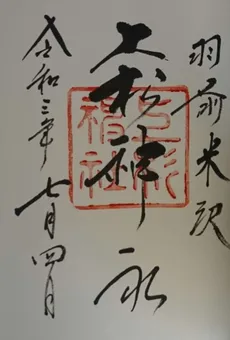 羽前米沢
上杉神社
令和三年七月四日
上杉神社